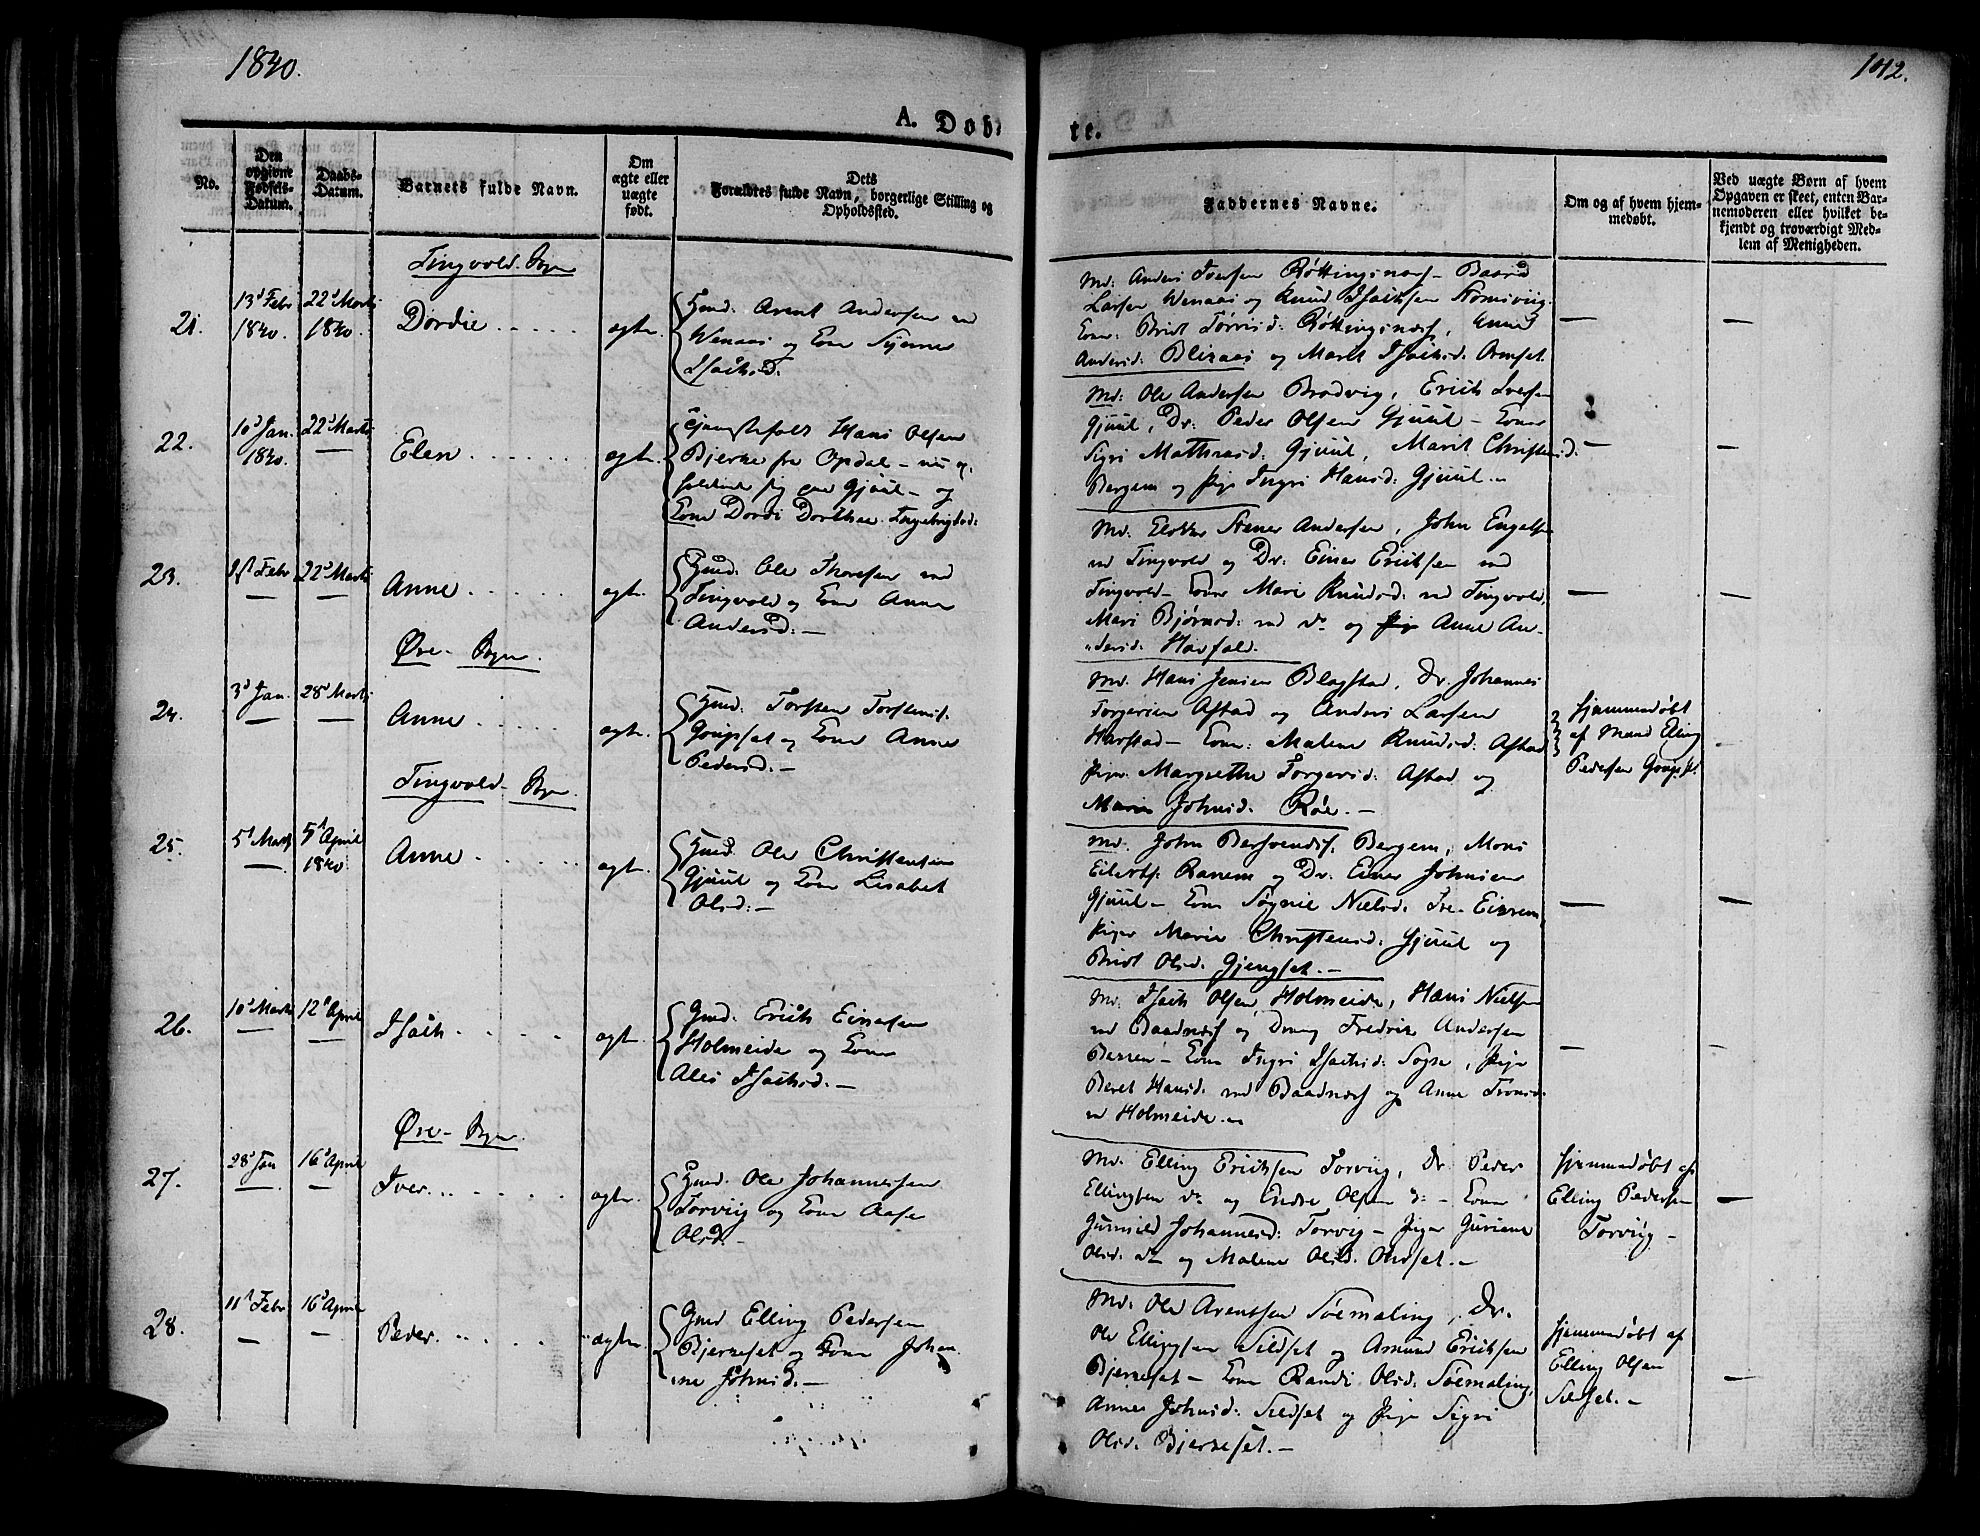 1840.
142.
A. Døb-
te.
No.
Den opgivne Fødsels-Datum.
Daabs-Datum.
Barnets fulde Navn.
Om ægte eller uægte født.
Dets Forældres fulde Navn, borgerlige Stilling og Opholdssted.
Faddernes Navne.
Om og af hvem hjem-
medøbt.
Ved uægte Børn af hvem
Opgaven er skeet, enten Bar-
nemoderen eller hvilket be-
kjendt og troværdigt Med-
lem af Menigheden.
Tingvold Sogn
21.
13d Febr 1840.
22d Marti 1840.
Dordie
ægte.
Gmd. Arent Andersen
Wenaas og Kone
Isachsd.
Md. Anders Iversen Røttingsnæs – Baard
Larsen Wenaas og Knud Isachsen
Kone: Brit Røttingsnæs, Anne
Andersd: og Marit Isachsd:
—
—
22.
10d Jan. 1840.
22d Marti
—
Elen
ægte.
Hans Olsen
Bjerke fra Opdal – nu op-
holdende sig paa Gjuul – og
Kone Dordi Dorthea Ingebrigtsd:
Md: Ole Andersen Bredvig, Erich Iversen
Gjuul, Dr: Peder Olsen Gjuul – Kone
Sigri Gjuul, Marit Christensd:
Bergem og Pige Ingri Hansd: Gjuul –
—
—
23.
Febr
—
22d Marti
—
Anne
ægte.
Gmd. Ole Thoresen ved
Tingvold og Kone Anne
Andersd: –
Md. Andersen, John
ved Tingvold og Dr. Einer Erichsen ved
Tingvold – Kone Mari Knudsd: ved Tingvold,
Mari Bjørnsd: ved do og Pige Anne An-
dersd:
—
—
Øre – Sogn.
24.
3d Jan.
—
28d Marti
—
Anne
ægte.
Gmd. Torsten Torstens.
og Kone Anne
Pedersd. –
Md. Hans Jensen Blagstad, Dr. Johannes
Astad og Anders Larsen
Harstad – Kone: Malene Knudsd: Astad
Pige Margrethe Astad og
Johnsd. Røe. –
hjemmedøbt
af Mand Elling
Pedersen
Tingvold Sogn.
25.
5d Marti
—
5d April 1840
Anne
ægte.
Gmd. Ole Christensen
Gjuul og Kone Lisabet
Olsd: –
Md. John Bergem, Mons
Eilerts. Ranem og Dr. Einer Johnsen
Gjuul – Kone Nielsd.
Pige Marie Christensd. Gjuul og
Brit Olsd. Gjengset. –
—
—
26.
10d Marti
—
12d April
—
Isach
ægte.
Gmd. Erich Einersen
Holmeide og Kone
Isachsd. –
Md. Isach Olsen Holmeide, Hans Nielsen
ved Baadnæs og Dreng Fredrik Andersen
– Kone Ingri Isachsd: Pige
Beret Hansd: ved Baadnæs og Anne
Holmeide. –
—
—
Øre – Sogn.
27.
28d Jan
—
16d April
—
Iver
ægte.
Gmd. Ole Johannessen
Torvig og Kone Aase
Olsd. –
Md. Elling Erichsen Torvig, Dr. Peder
Ellingsen do og Endre Olsen do – Kone
Gunild Johannesd: Torvig – Pige Guriane
Olsd. do og Malene Olsd. –
hjemmedøbt af
Elling Pedersen
Torvig –
—
28.
11d Febr
—
16d April
—
Peder
ægte.
Gmd Elling Pedersen
Bjerkeset og Kone Johan-
ne Johnsd. –
Md. Ole Arentsen Søemaling, Dr.
Ole Ellingsen Sildset og Amund Erichsen
Bjerkeset – Kone Randi Olsd. Søemaling,
Anne Johnsd: Sildset og Pige Sigri
Olsd. Bjerkeset. –
hjemmedøbt af
Elling Olsen
Sildset. –
—